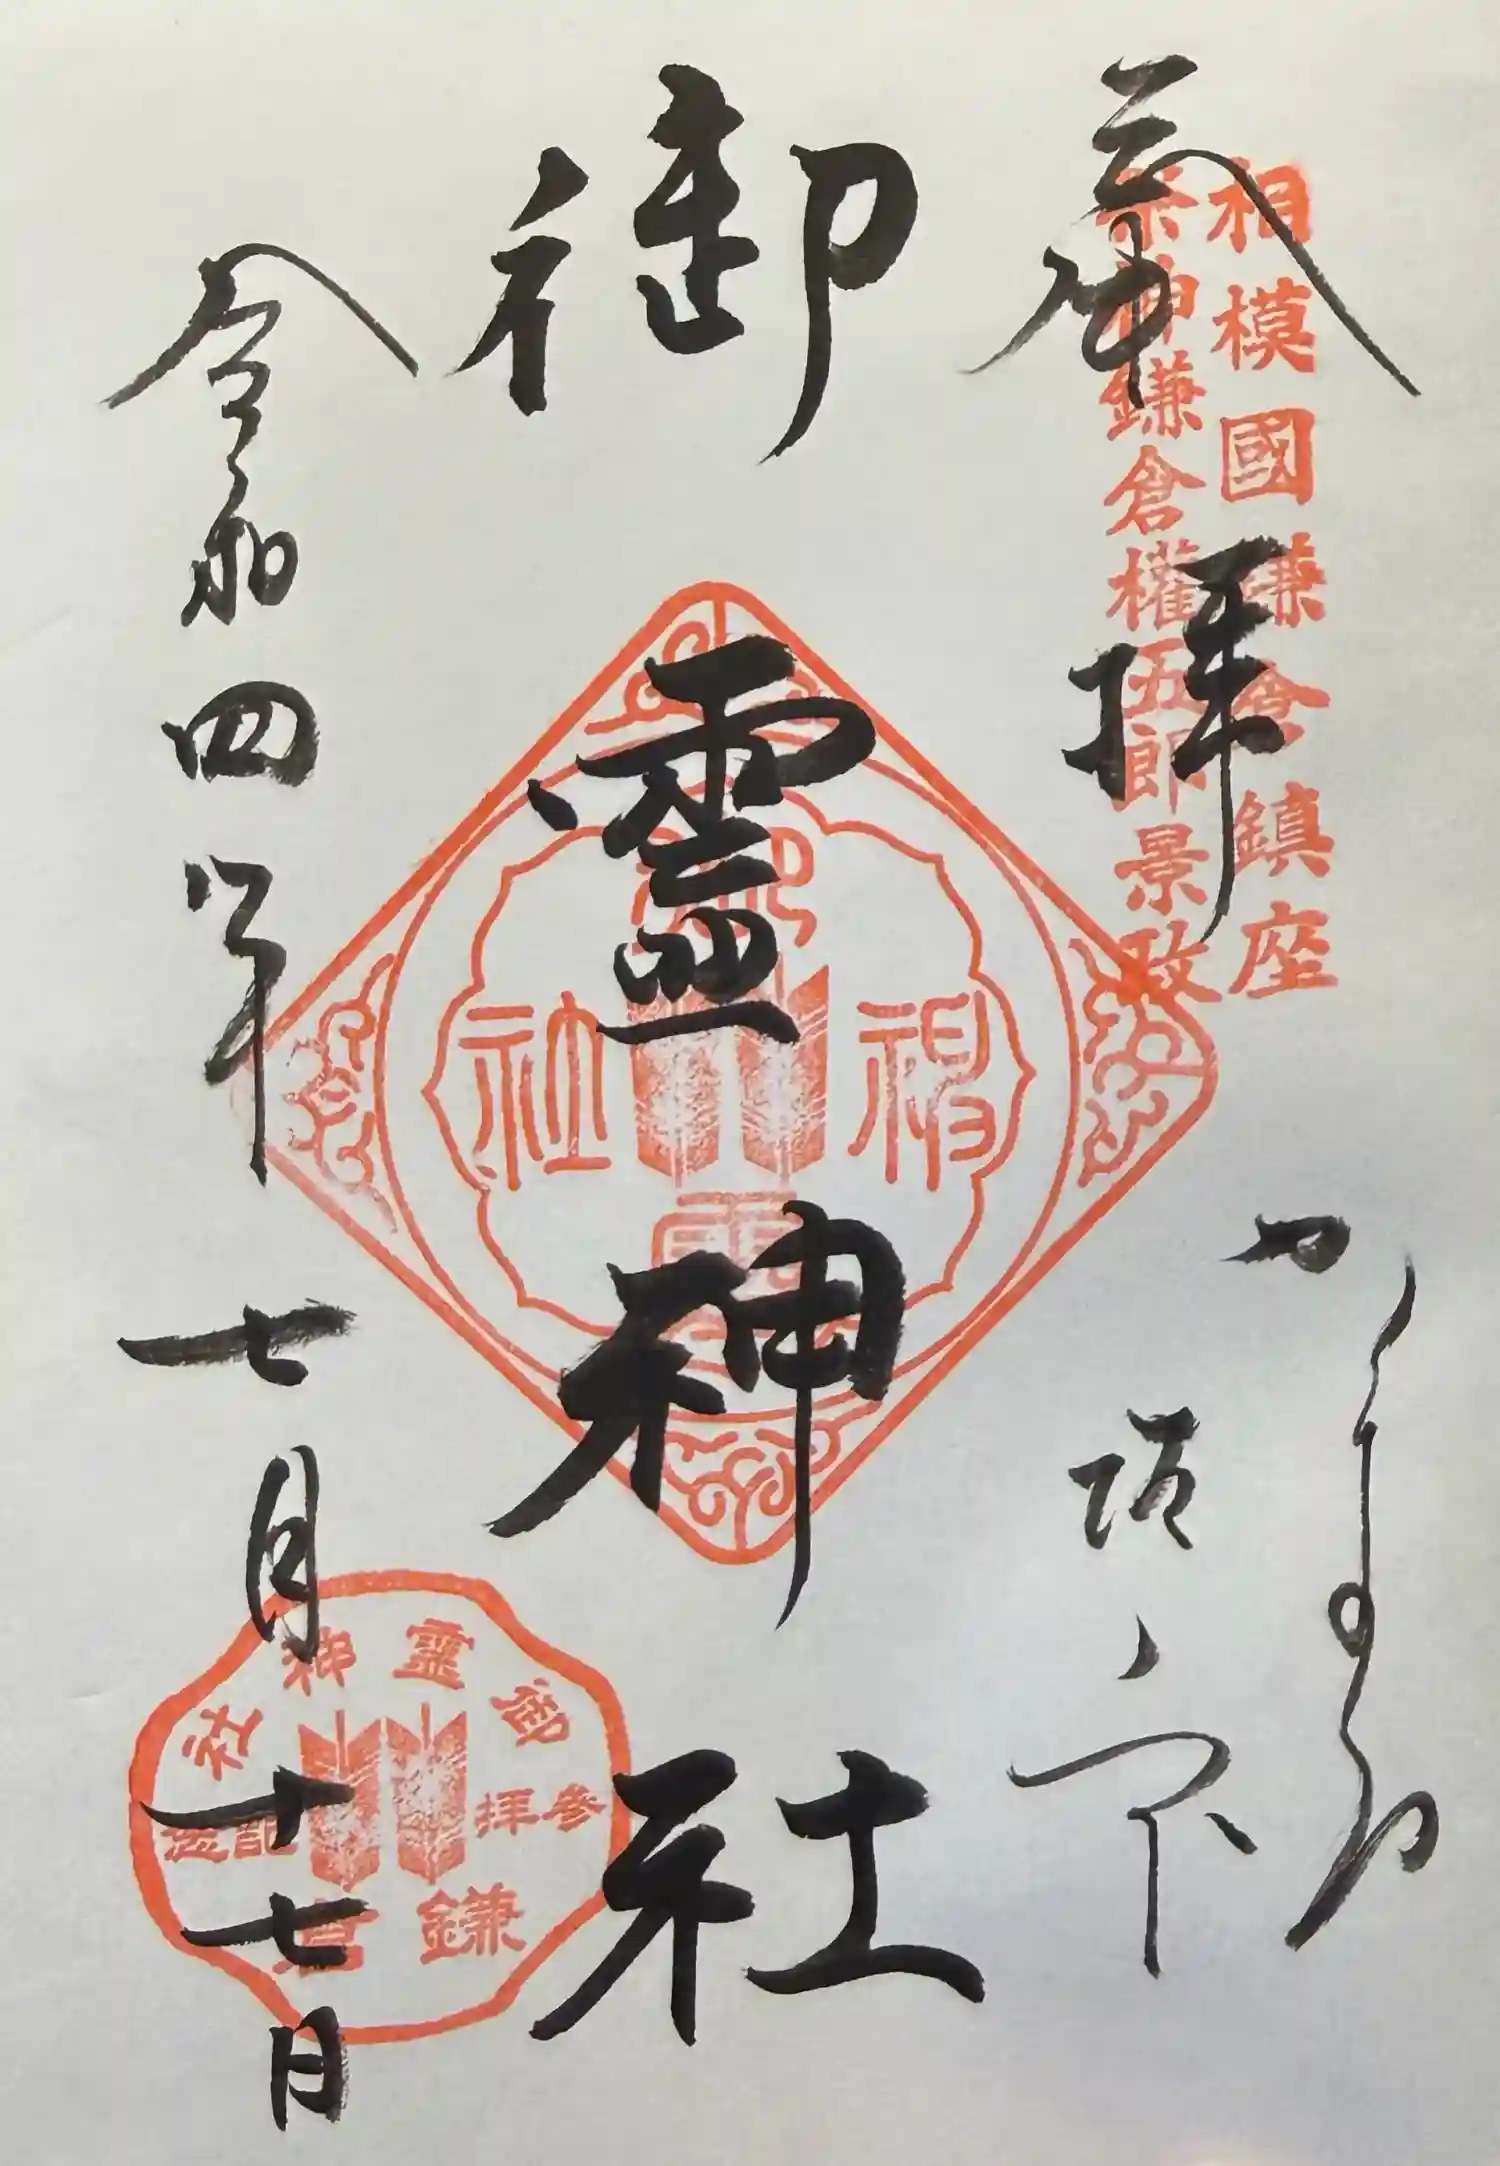 奉拝
相模國鎌倉鎮座
祭神鎌倉權五郎景政
かまくら
坂ノ下
御靈神社
令和四年七月十七日
御靈神社
御靈神社
參拝
記念
鎌倉